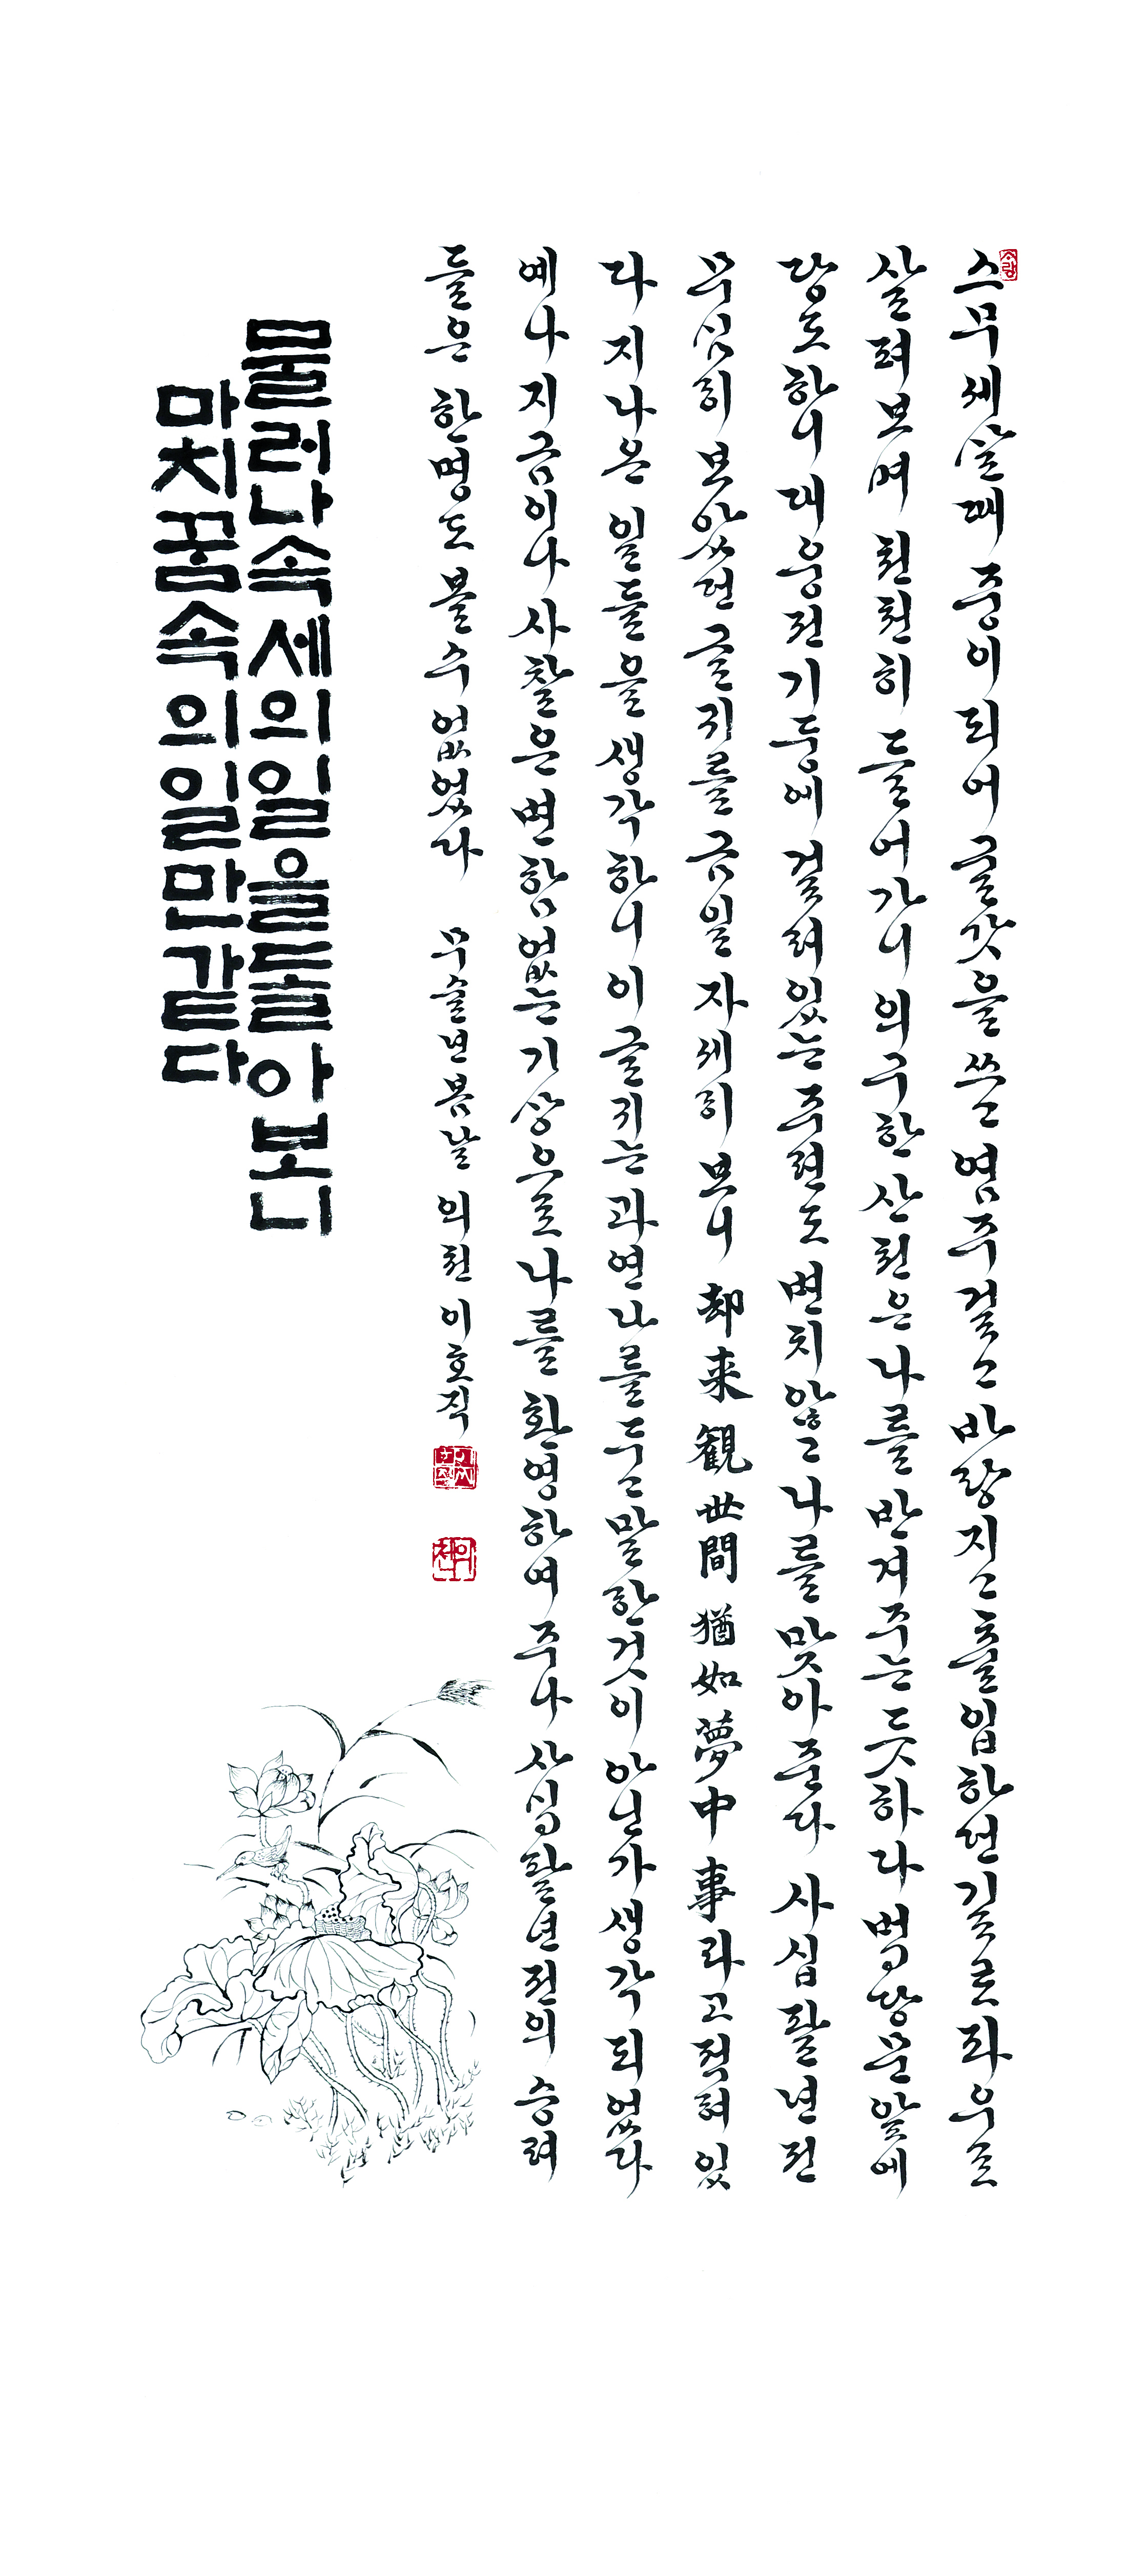 스무세살때 중이되어 굴갓을 쓰고 염주 걸고 바랑지고 출입하던 길로 좌우로
살펴보며 천천히 들어가니 의구한 산천은 나를 반겨주는 듯하다 법당문앞에
당도하니 대웅전 기둥에 걸려있는 주련도 변치 않고 나를 맞아 준다 사십팔년전
무심히 보았던 글귀를 금일 자세히 보니 却来観世間 猶如夢中事라고 적혀 있
다 지나온 일들을 생각하니 이 글귀는 과연 나를 두고 말한것이 아닌가 생각되었다
예나 지금이나 사찰은 변함없는 기상으로 나를 환영하여 주나 사십팔년전의 승려
들은 한명도 볼수 없었다 무술년 봄날 의천 이호직
의천
물러나 속세의 일을 돌아보니
마치 꿈속의 일만 같다